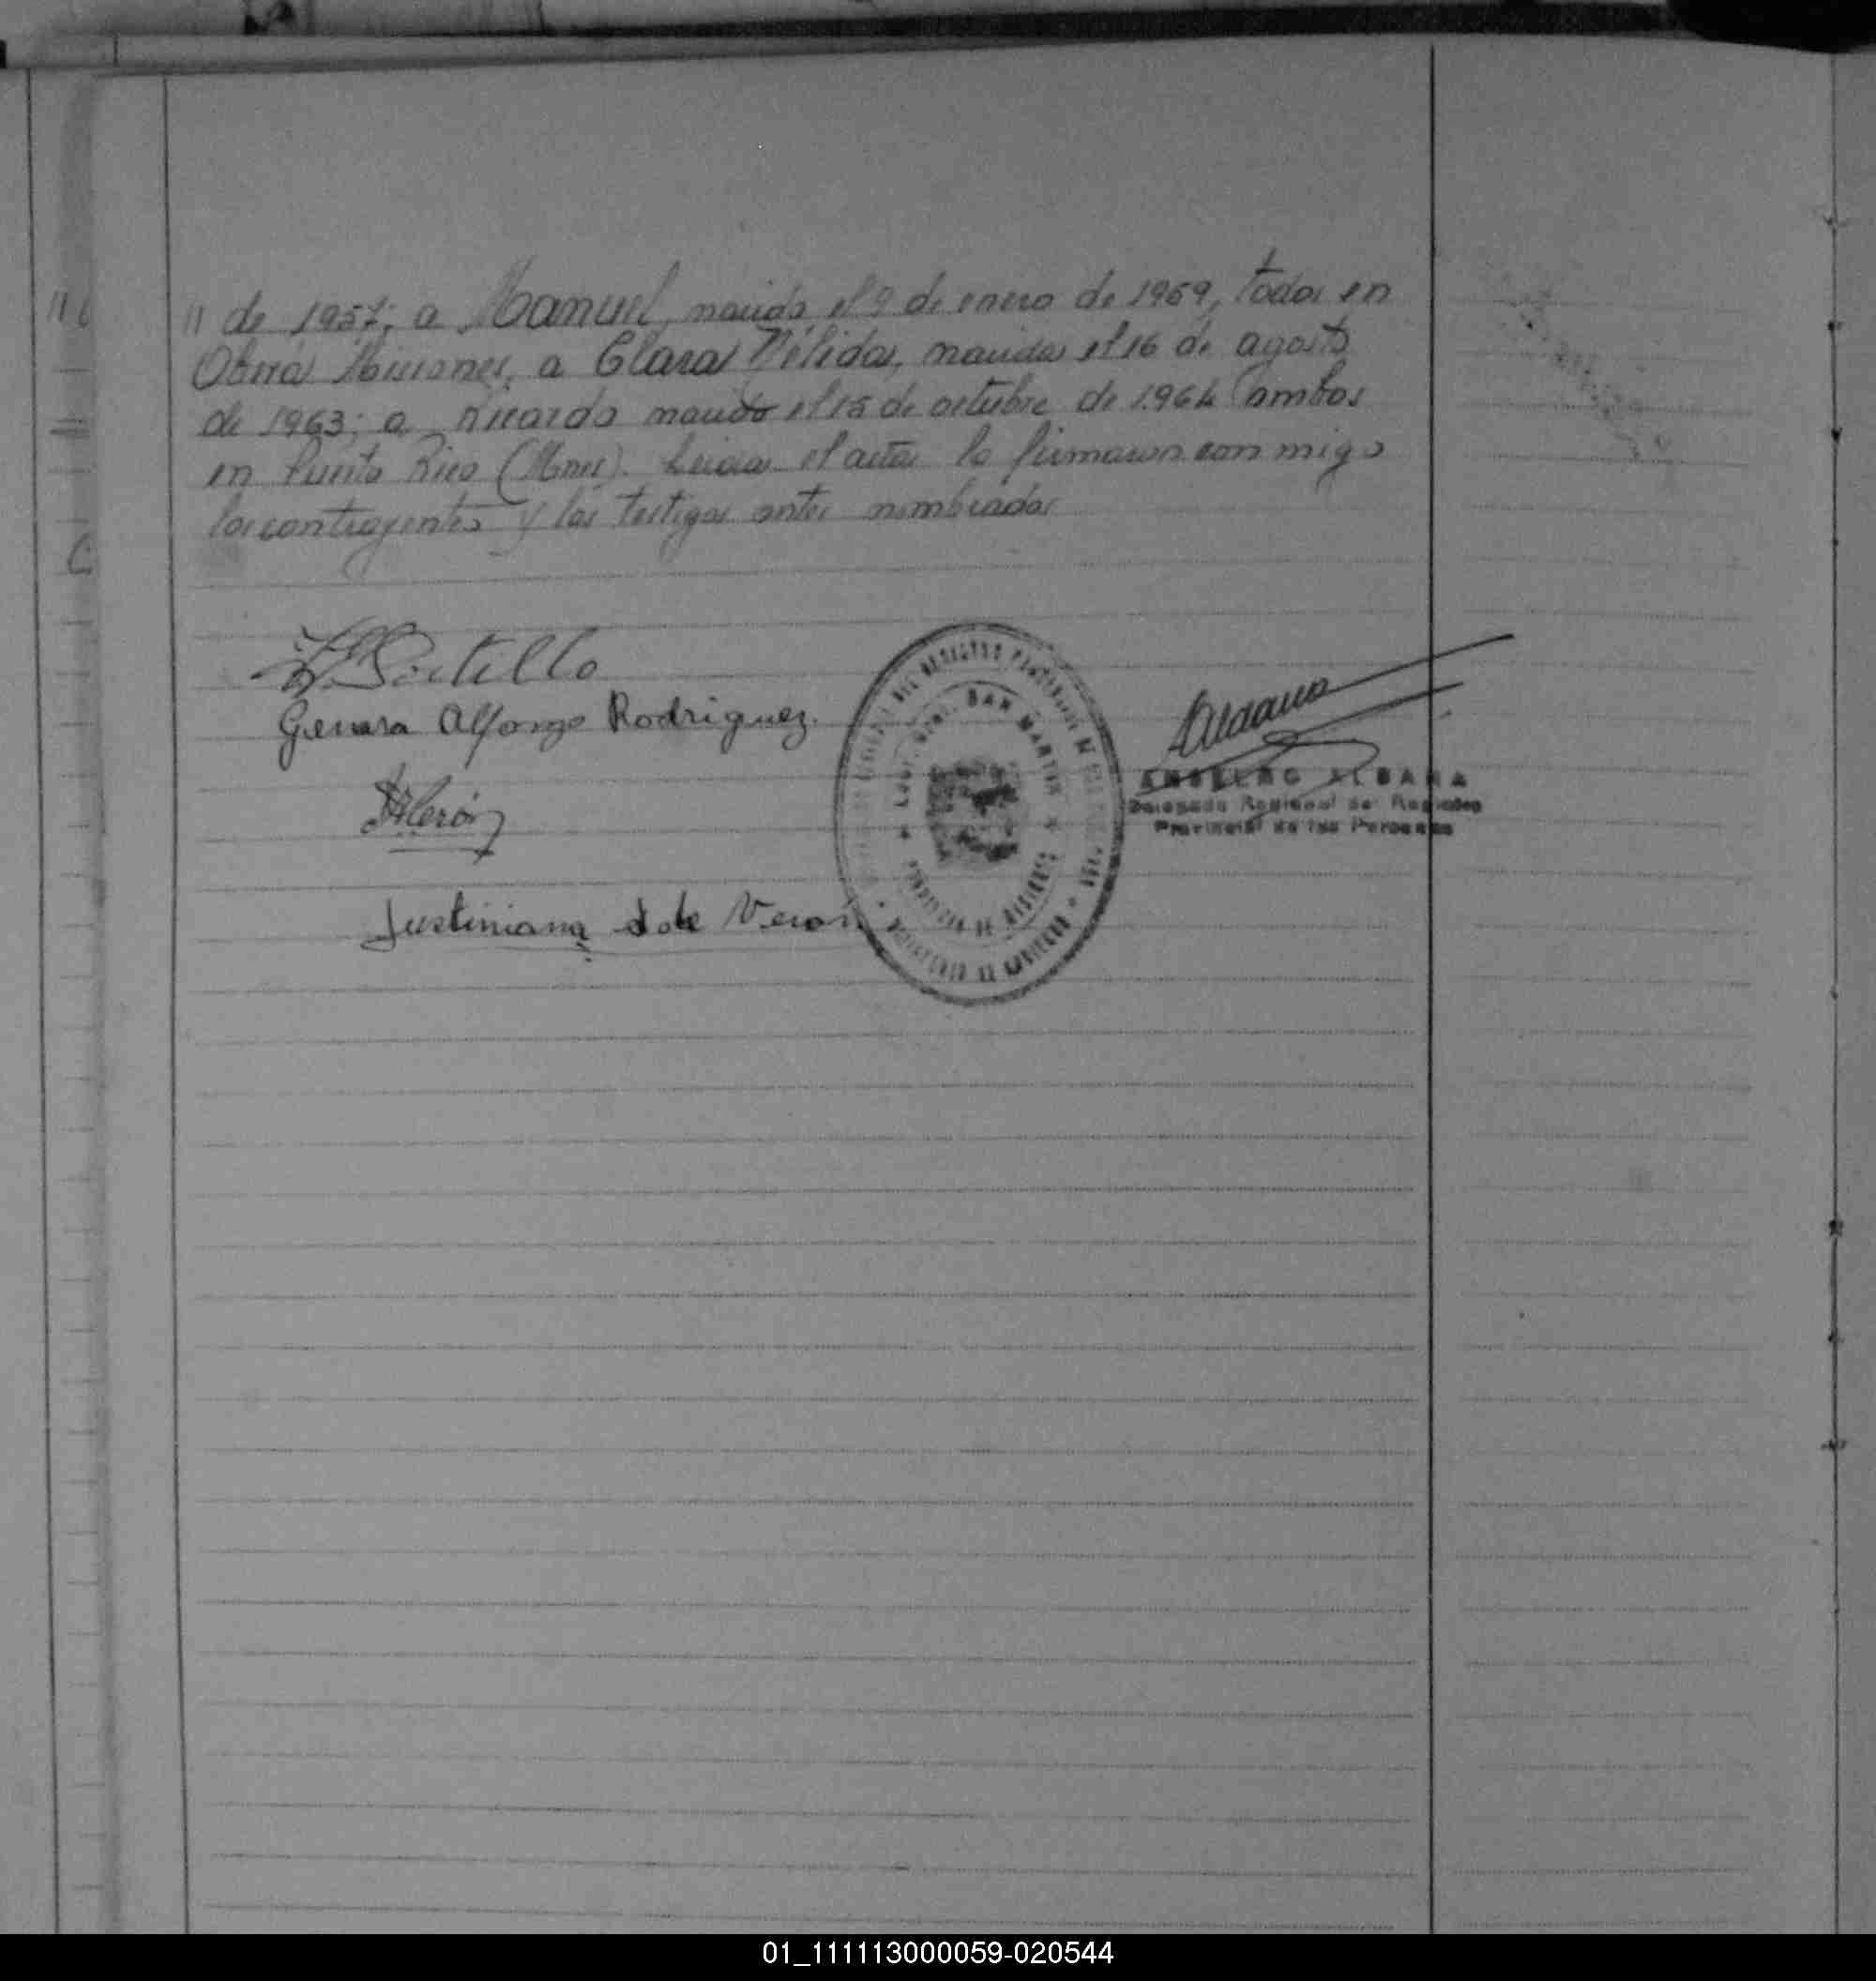 11 de 1957; a Manuel, nacido el 9 de enero de 1959, todos en
Oberá Misiones, a Clara Nélida, nacida el 16 de agosto
de 1963; a Ricardo nacido el 15 de octubre de 1.964 ambos
en Puerto Rico (Mnes). Leida el acta la firmaron con migo
los contrayentes y los testigos antes nombrados
Portillo
Genara Alfonzo Rodriguez.
Verón
Justiniana de Veron
SAN MARTIN
PROVINCIA DE MISIONES
MINISTERIO DE GOBIERNO
Aldana
ANSELMO ALDANA
Delegado Regional del Registro
Provincial de las Personas
01_111113000059-020544